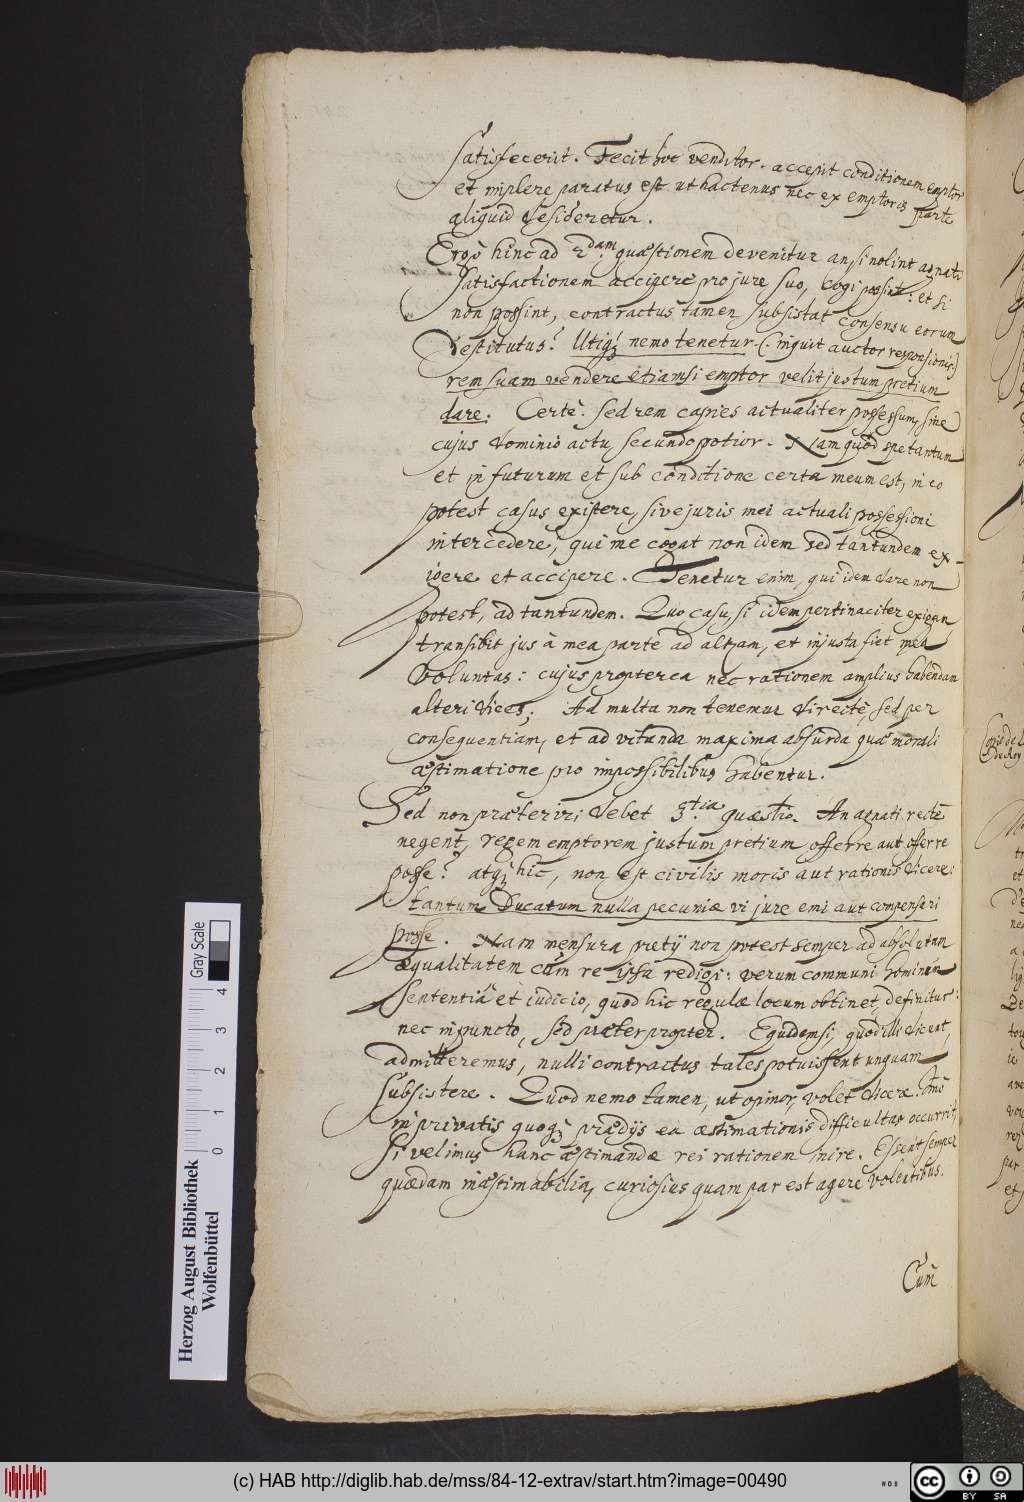 satisfecerit. Fecit hoc venditor. accepit conditionem emptor
et implere paratus est ut hactenus nec ex emptoris parte
aliquid desideretur.
Ergo hinc ad 2dam quæstionem devenitur an si nolint agnati
satisfactionem accipere pro jure suo, cogi possint: et si
non possint, contractus tamen subsistat consensu eorum
destitutus? Utiq; nemo tenetur (inquit auctor responsionis)
rem suam vendere etiamsi emptor velit justum pretium
dare. Certè. sed rem capies actualiter possessum, sine
cujus dominio actu, secundo potior. Nam quod spe tantum
et in futurum et sub conditione certa meum est, in eo
potest casus existere, sive juris mei actuali possessioni
intercedere, qui me cogat non idem sed tantundem ex-
igere et accipere. Tenetur enim, qui idem dare non
potest, ad tantundem. Quo casu, si idem pertinaciter exigam
transibit jus à mea parte ad altram, et injusta fiet mea
voluntas: cujus propterea nec rationem amplius habendam
alteri dices; Ad multa non tenemur directè, sed per
consequentiam, et ad vitanda maxima absurda quæ morali
æstimatione pro impossibilibus habentur.
Sed non præteriri debet 3.tia quæstio. An agnati rectè
negent, regem emptorem justum pretium offerre aut offerre
posse? atq; hic, non est civilis moris aut rationis dicere:
tantum Ducatum nulla pecuniæ vi jure emi aut compensari
posse. Nam mensura pretij non potest semper ad absolutam
æqualitatem cùm re ipsa redigi: verum communi hominum
sententiâ et iudicio, quod hic regulæ locum obtinet, definitur:
nec in puncto, sed præter propter. Equidem si, quod illi dicunt,
admitteremus, nulli contractus tales potuissent unquam
subsistere. Quod nemo tamen, ut opinor, volet dicere. Imò
in privatis quoq; prædijs ea æstimationis difficultas occurrit,
si velimus hanc æstimandæ rei rationem inire. Essent semper
quædam inæstimabilia, curiosius quam par est agere volentibus.
Cum
Herzog August Bibliothek
Wolfenbüttel
Gray Scale
0 1 2 3 4
(c) HAB http://diglib.hab.de/mss/84-12-extrav/start.htm?image=00490
cc BY SA